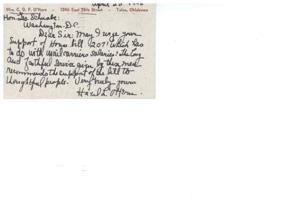 April 28
Mrs. C. D. F. O'Hern - 1249 East 29th Street - Tulsa, Oklahoma
Hon.
Washington D.C.
Dear Sir: May I urge your
support of House bill 2071 which has
to do with mail carriers salaries. The long
and faithful service given by these men
recommends the support of the bill to
thoughtful people.
Very truly yours
O'Hern.